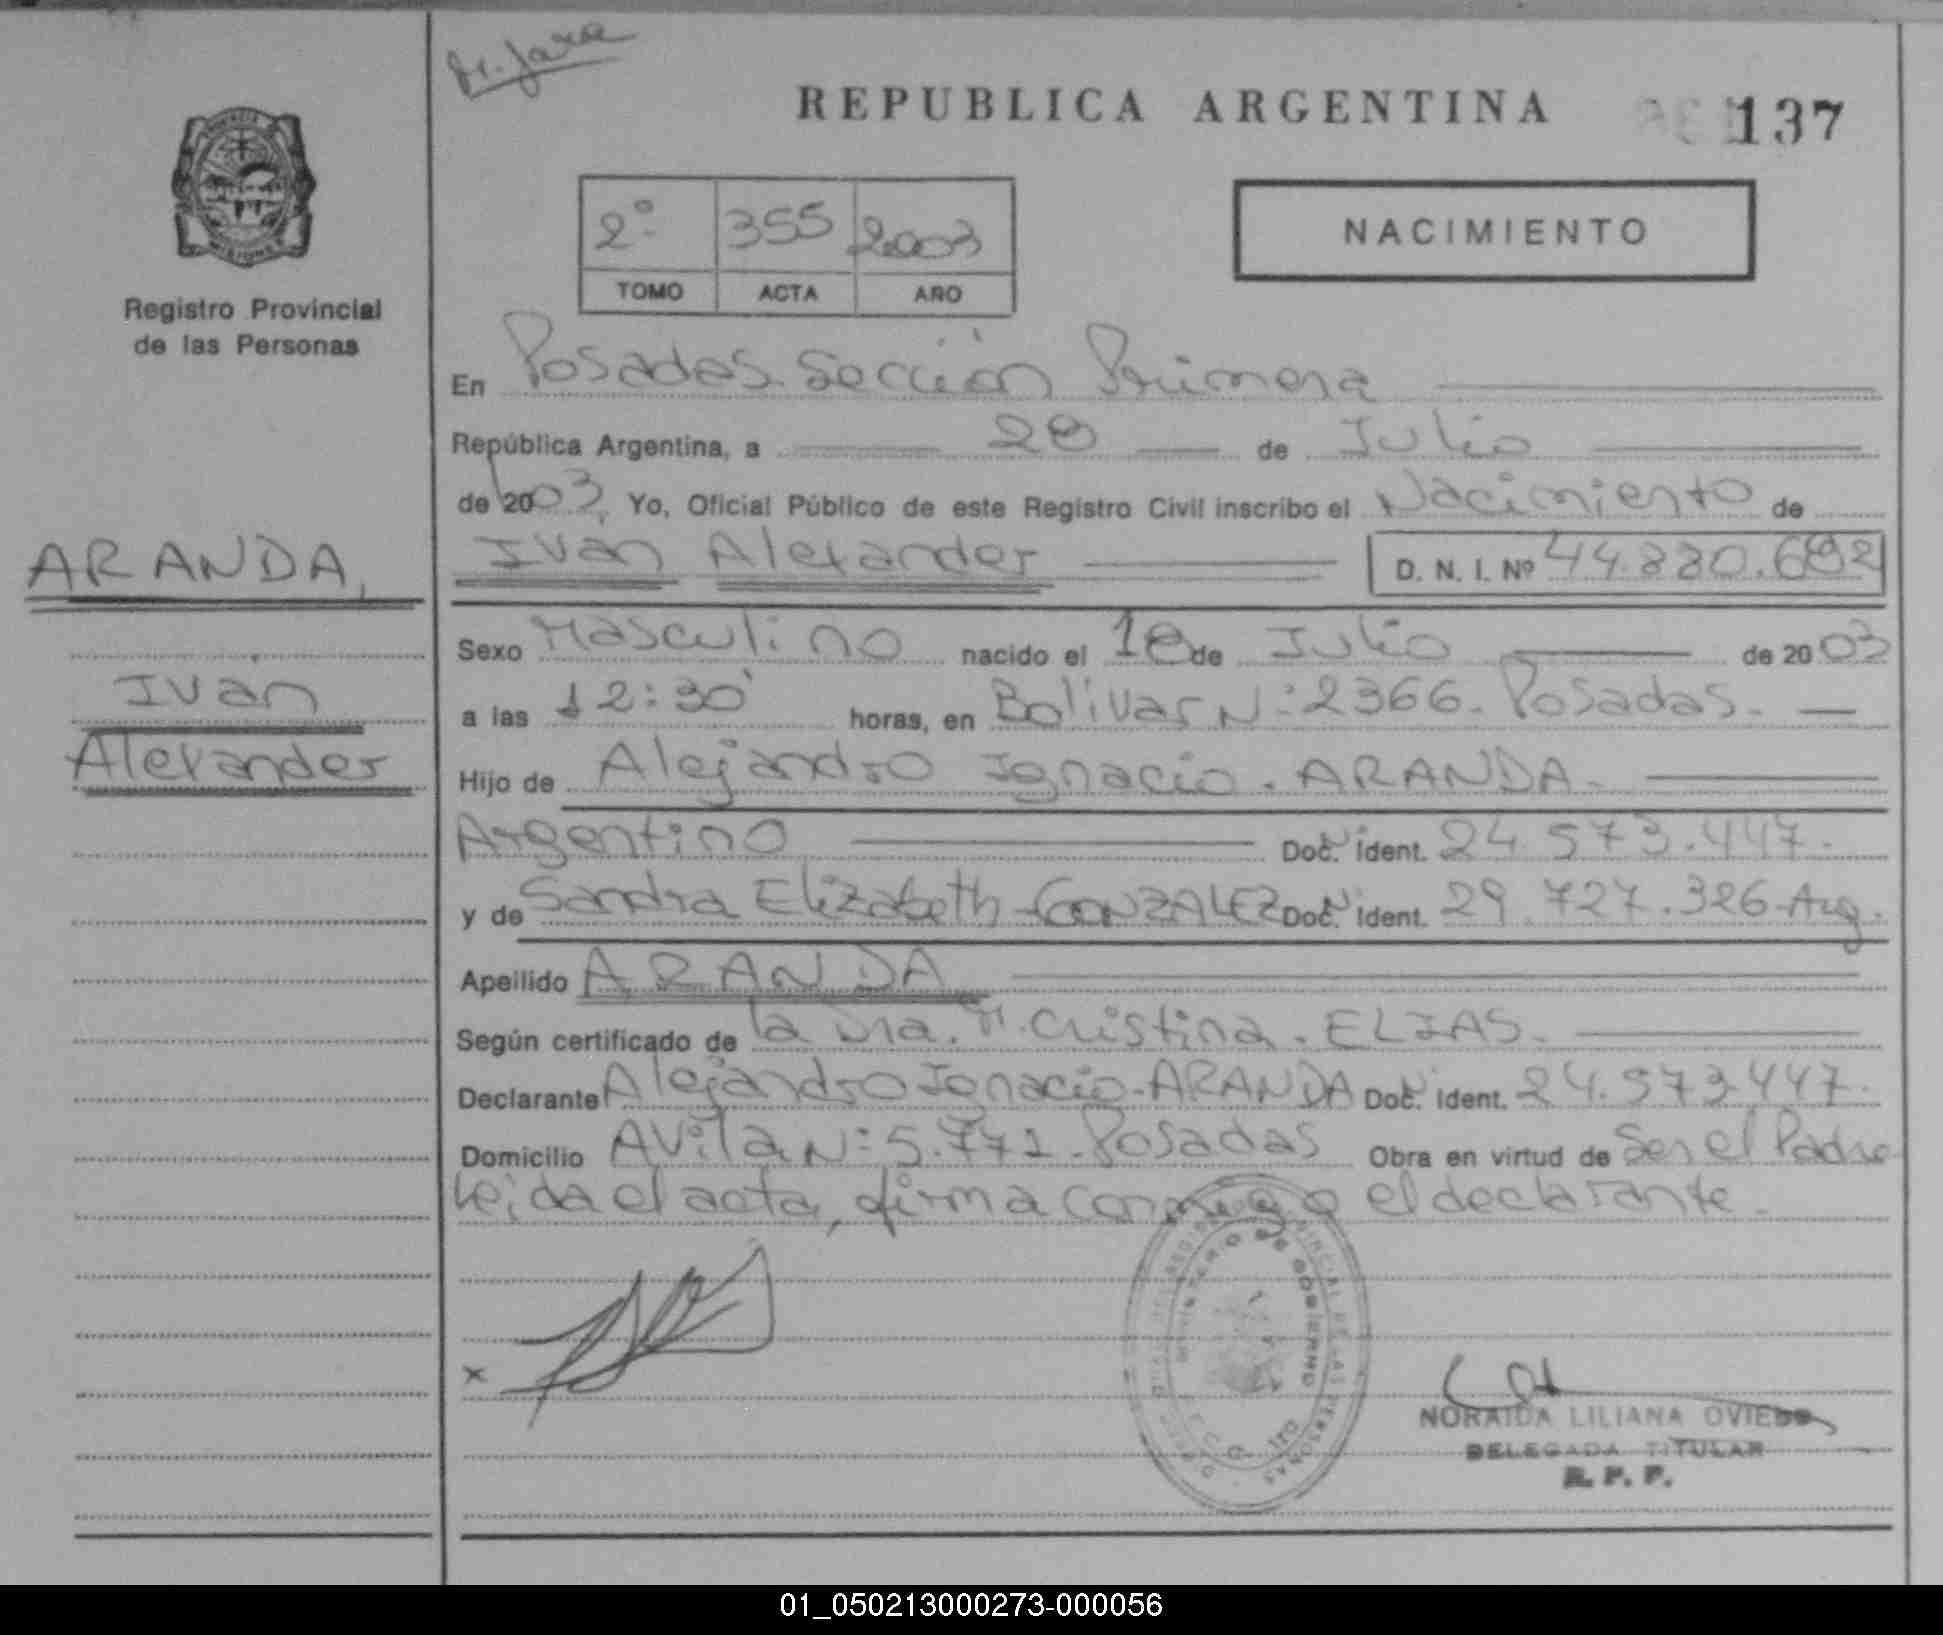 M. Jara
REPUBLICA ARGENTINA
137
2º
355
2003
TOMO
ACTA
AÑO
NACIMIENTO
Registro Provincial
de las Personas
En Posadas Sección Primera
República Argentina, a 28 de Julio
de 2003, Yo, Oficial Público de este Registro Civil inscribo el Nacimiento de
Ivan Alexander D. N. I. Nº 44.880.692
ARANDA,
Ivan
Alexander
Sexo Masculino nacido el 18 de Julio de 2003
a las 12:30' horas, en Bolivar N: 2366. Posadas.
Hijo de Alejandro Ignacio. ARANDA.
Argentino Doc. ident. 24.573.447.
y de Sandra Elizabeth GONZALEZ Doc. ident. 29.727.326 Arg.
Apellido ARANDA
Según certificado de la Dra. M. Cristina. ELIAS.
Declarante Alejandro Ignacio ARANDA Doc. ident. 24.573.447.
Domicilio Avila N: 5.771. Posadas Obra en virtud de Ser el Padre
Leida el acta, firma conmigo el declarante.
x
MINISTERIO DE GOBIERNO
NORAIDA LILIANA OVIEDO
DELEGADA TITULAR
R. P. P.
01_050213000273-000056